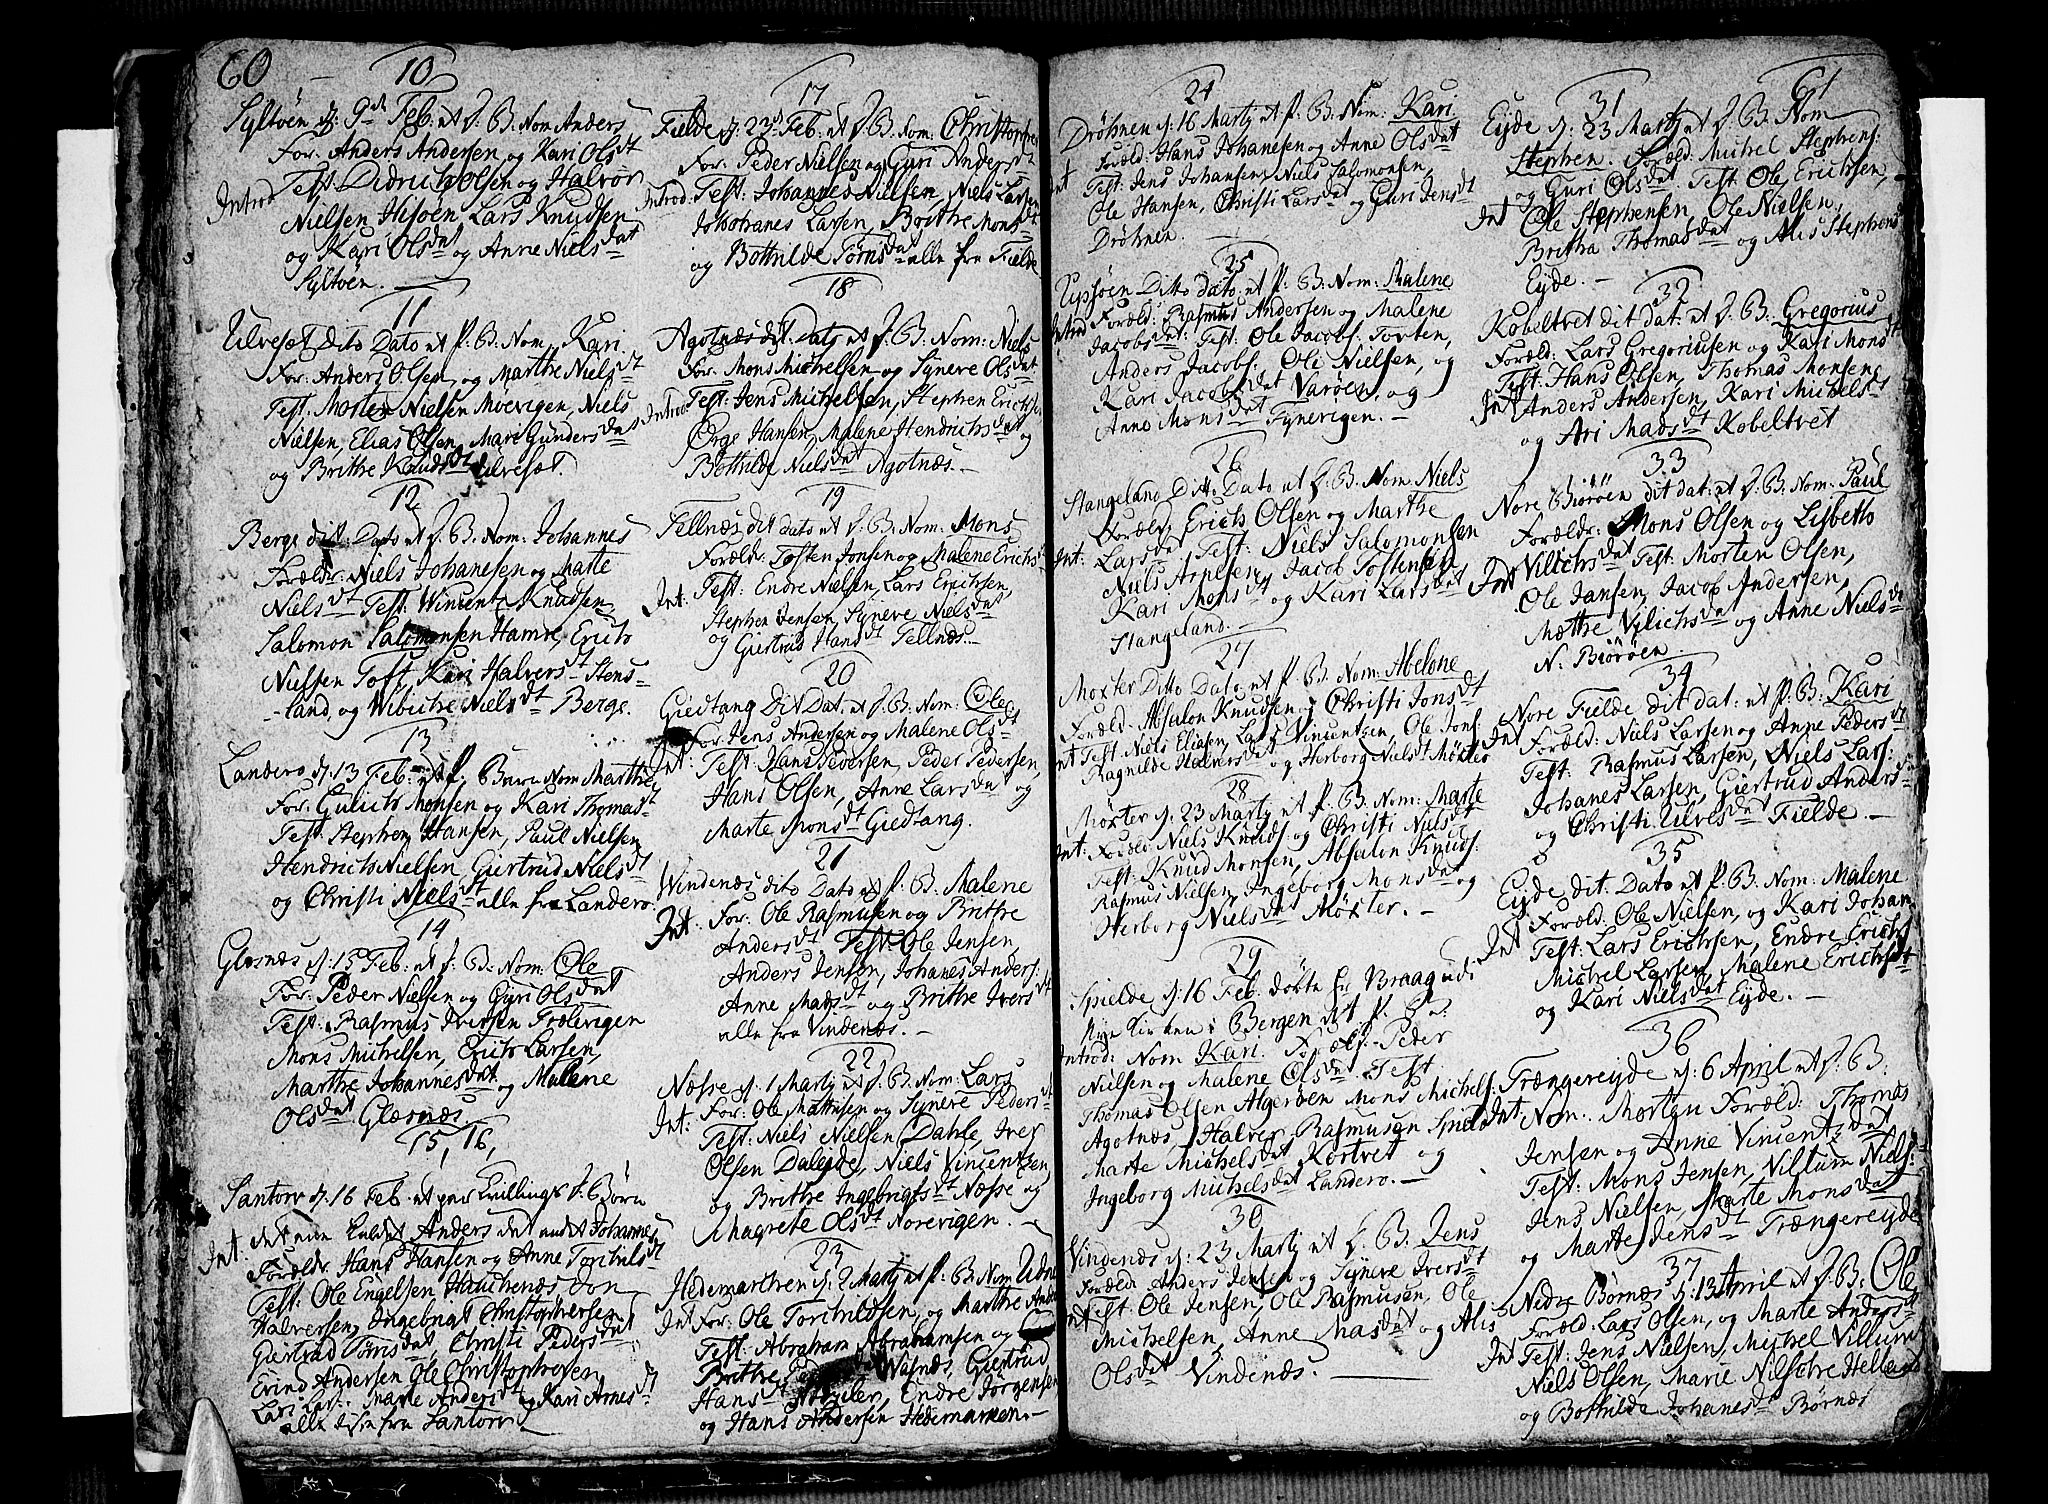 60
10
Syltöen d. 9de Feb: et P. B. Nom Anders
For: Anders Andersen, og Kari Olsdt
Test Didrich Olsen og Halvor
Introd Nielsen Hisöen, Lars Knudsen
og Kari Olsdat og Anne Nielsdat
Syltöen. —
11
Ulvesæt Dito Dato et P. B. Nom, Kari
For: Anders Olsen, og Marthe Nielsdt
Test: Morten Nielsen Moevigen, Niels
Nielsen, Elias Olsen, Mari Gundersdat
og Brithe Knudsdt Ulvesæt.
12
Berge dit: Dato et P. B. Nom: Johannes
Foreldr: Niels Johanesen og Marte
Nielsdt Test: Wincentz Knudsen,
Salomon Salomonsen Hamre, Erich
Nielsen Toft Kari Halversdt Stens-
-land, og Wibicke Nielsdt Berge.
13
Landero d. 13 Feb: et P. Barn Nom Marthe
For: Gulich Monsen og Kari Thomasdt
Test Stephen Hansen, Paul Nielsen
Hendrich Nielsen, Giertrud Nielsdt
og Christi Nielsdt alle fra Landero.
14
Glesnæs d. 15 Feb: et P: B: Nom: Ole
For: Peder Nielsen og Guri Olsdat
Test: Rasmus Iversen Trælevigen
Mons Michelsen, Erich Larsen,
Marthe Johannesdat og Malene
Olsdat Glesnæs
15, 16,
Santorv d. 16 Feb: et par tvillings P. Börn
Int. det eene kaldet Anders det andet Johannes
Foreldr. Hans Hansen og Anne Torchilsdt
Test: Ole Engelsen
Halversen, Ingebrigt Christophersen
Giertrud Tørrisdat, Christi Pedersdat
Erind Andersen Ole Christophersen
Lars Lars. Marte Andersdt og Kari Arnesdt
alle disse fra Santorv
17
Fielde d. 23d Feb: et P. B. Nom: Christopher
For: Peder Nielsen og Guri Andersdt
Introd: Test: Johannes Nielsen, Niels Larsen
Johanes Larsen, Brithe Monsdt
og Bothilde Tørrisdat alle fra Fielde
18
Agotnæs dit. Dato et P. B. Nom: Niels
For: Mons Michelsen og Syneve Olsdat
Introd Test: Jens Michelsen, Stephen Erichsen
Örge Hansen, Malene Hendrichsdat og
Bothilde Nielsdat Agotnæs. —
19
Tellnæs dit dato et P. B. Nom: Mons
Foreldr: Tosten Jonsen og Malene Erichsdt
Int: Test: Endre Nielsen, Lars Erichsen,
Stephen Jensen, Synneve Nielsdat
og Giertrud Hansdt Tellnæs. —
20
Giedtang Dit Dat: et P. B. Nom: Ole
For Jens Andersen og Malene Olsdt
Int: Test: Hans Pedersen, Peder Pedersen,
Hans Olsen, Anne Larsdat og
Marte Monsdt Giedtang.
21
Windenæs dito Dato et P. B: Malene
Int: For: Ole Rasmusen og Brithe
Andersdt Test: Ole Jensen,
Anders Jensen, Johanes Anders:
Anne Madsdt og Brithe Iversdt
alle fra Vindenæs. —
22
Næsse d. 1 Martz et P. B: Nom: Lars
Int: For: Ole Mathisen og Synneve Pedersdt
Test: Niels Nielsen Dahle, Iver
Olsen Daleyde, Niels Vincentsen,
og Brithe Ingebrigtsdt Næsse og
Magrete Olsdt Norevigen. —
23
Hedemarchen d. 2 Martz et P. B. Nom
Int For: Ole Torchildsen, og Marthe
Test: Abraham Abrahamsen og
Brithe Wasnæs, Giertrud
Hansdt Endre Jørgensen
og Hans Andersen Hedemarken. —
24
Dröhnen d. 16 Martz et P. B: Nom: Kari
Foræld: Hans Johanesen og Anne Olsdat
Int Test: Jens Johansen, Niels Salomonsen,
Ole Hansen, Christi Larsdat og Guri Jensdt
Dröhnen.
25
Uppsøen Ditto dato et P: B: Nom: Malene
Introd Forældr: Rasmus Andersen og Malene
Jacobsdat. Test: Ole Jacobs. Torten,
Anders Jacobs: Ole Nielsen, og
Kari Jacobsdat Varöen, og
Anne Monsdat Fynevigen. —
26
Stangeland Ditto Dato et P. B. Nom: Niels
Foræld: Erich Olsen og Marthe
Int: Larsdat Test: Niels Salomonsen
Niels Arnesen, Jacob Tostensen
Kari Monsdt og Kari Larsdat
Stangeland. —
27
Møxter Ditto Dato et P. B. Nom: Abelone
Foræld: Absalon Knudsen og Christi Jonsdt
Int Test Niels Eliasen, Lars Vincentsen, Ole Jons:
Ragnilde Halversdat og Herborg Nielsdt Møxter
28
Møxter d. 23 Martz et P. B. Nom: Marte
Int: Foræld Niels Knuds: og Christi Nielsdt
Test: Knud Monsen, Absalon Knuds.
Rasmus Nielsen, Ingeborg Monsdat og
Herborg Nielsdat Møxter. —
29
Spielde d. 16 Feb. døbte Hr Braag udi
Nye Kirken i Bergen et P. B:
Introd: Nom Kari. Foræld: Peder
Nielsen og Malene Olsdat. Test
Thomas Olsen Algeröen Mons Michels:
Agotnæs, Halver Rasmusen Spield
Marte Michelsdat Kørtvet og
Ingeborg Michelsdat Landero. —
30
Vindenæs d. 23 Martz et P. B: Jens
Foræld: Anders Jensen og Synneve Iversdt
Int Test: Ole Jensen, Ole Rasmusen, Ole
Michelsen, Anne Masdat og Alis
Olsdat Vindenæs. —
61
31
Eyde d. 23 Martz et P. B. Nom
Stephen. Foræld: Michel Stephens:
og Guri Olsdat. Test Ole Erichsen,
Int Ole Stephensen, Ole Nielsen,
Britha Thomasdat og Alis Stephensd
Eyde. —
32
Kobeltvet dit dat: et P. B: Gregorius
Foræld: Lars Gregoriusen og Kari Monsdt
Test: Hans Olsen, Thomas Monsen,
Int Anders Andersen, Kari Michelsdt
og Ari Madsdt Kobeltvet
33
Nore Biöröen dit dat: et P. B. Nom: Paul
Forældr: Mons Olsen og Lisbeth
Int Vilichsdat Test: Morten Olsen,
Ole Jansen, Jacob Andersen,
Mætthe Vilichsdat og Anne Nielsdt
N: Biöröen.
34
Nore Fielde dit dat: et P: B: Kari
Int Foræld: Niels Larsen og Anne Pedersdt
Test: Rasmus Larsen, Niels Lars:
Johanes Larsen, Giertrud Andersdt
og Christi Ulvesdat Fielde. —
35
Eyde dit: Dato et P. B: Nom: Malene
Foræld: Ole Nielsen, og Kari Johan
Int Test: Lars Erichsen, Endre Erichs:
Michel Larsen, Malene Erichsdt
og Kari Nielsdat Eyde. —
36
Trængereyde d. 6 April et P: B:
Int Nom: Mortgn Foræld: Thomas
Jensen og Anne Vincentzdat
Test: Mons Jensen, Villum Niels:
Jens Nielsen, Marte Monsdat
og Marte Jensdt Trængereyde
37
Nedre Börnæs d. 13 April et P. B: Ole
Foræld: Lars Olsen, og Marte Andersdt
Int Test: Jens Nielsen, Michel Villum
Niels Olsen, Marie Helland
og Bothilde Johanesdt Börnæs